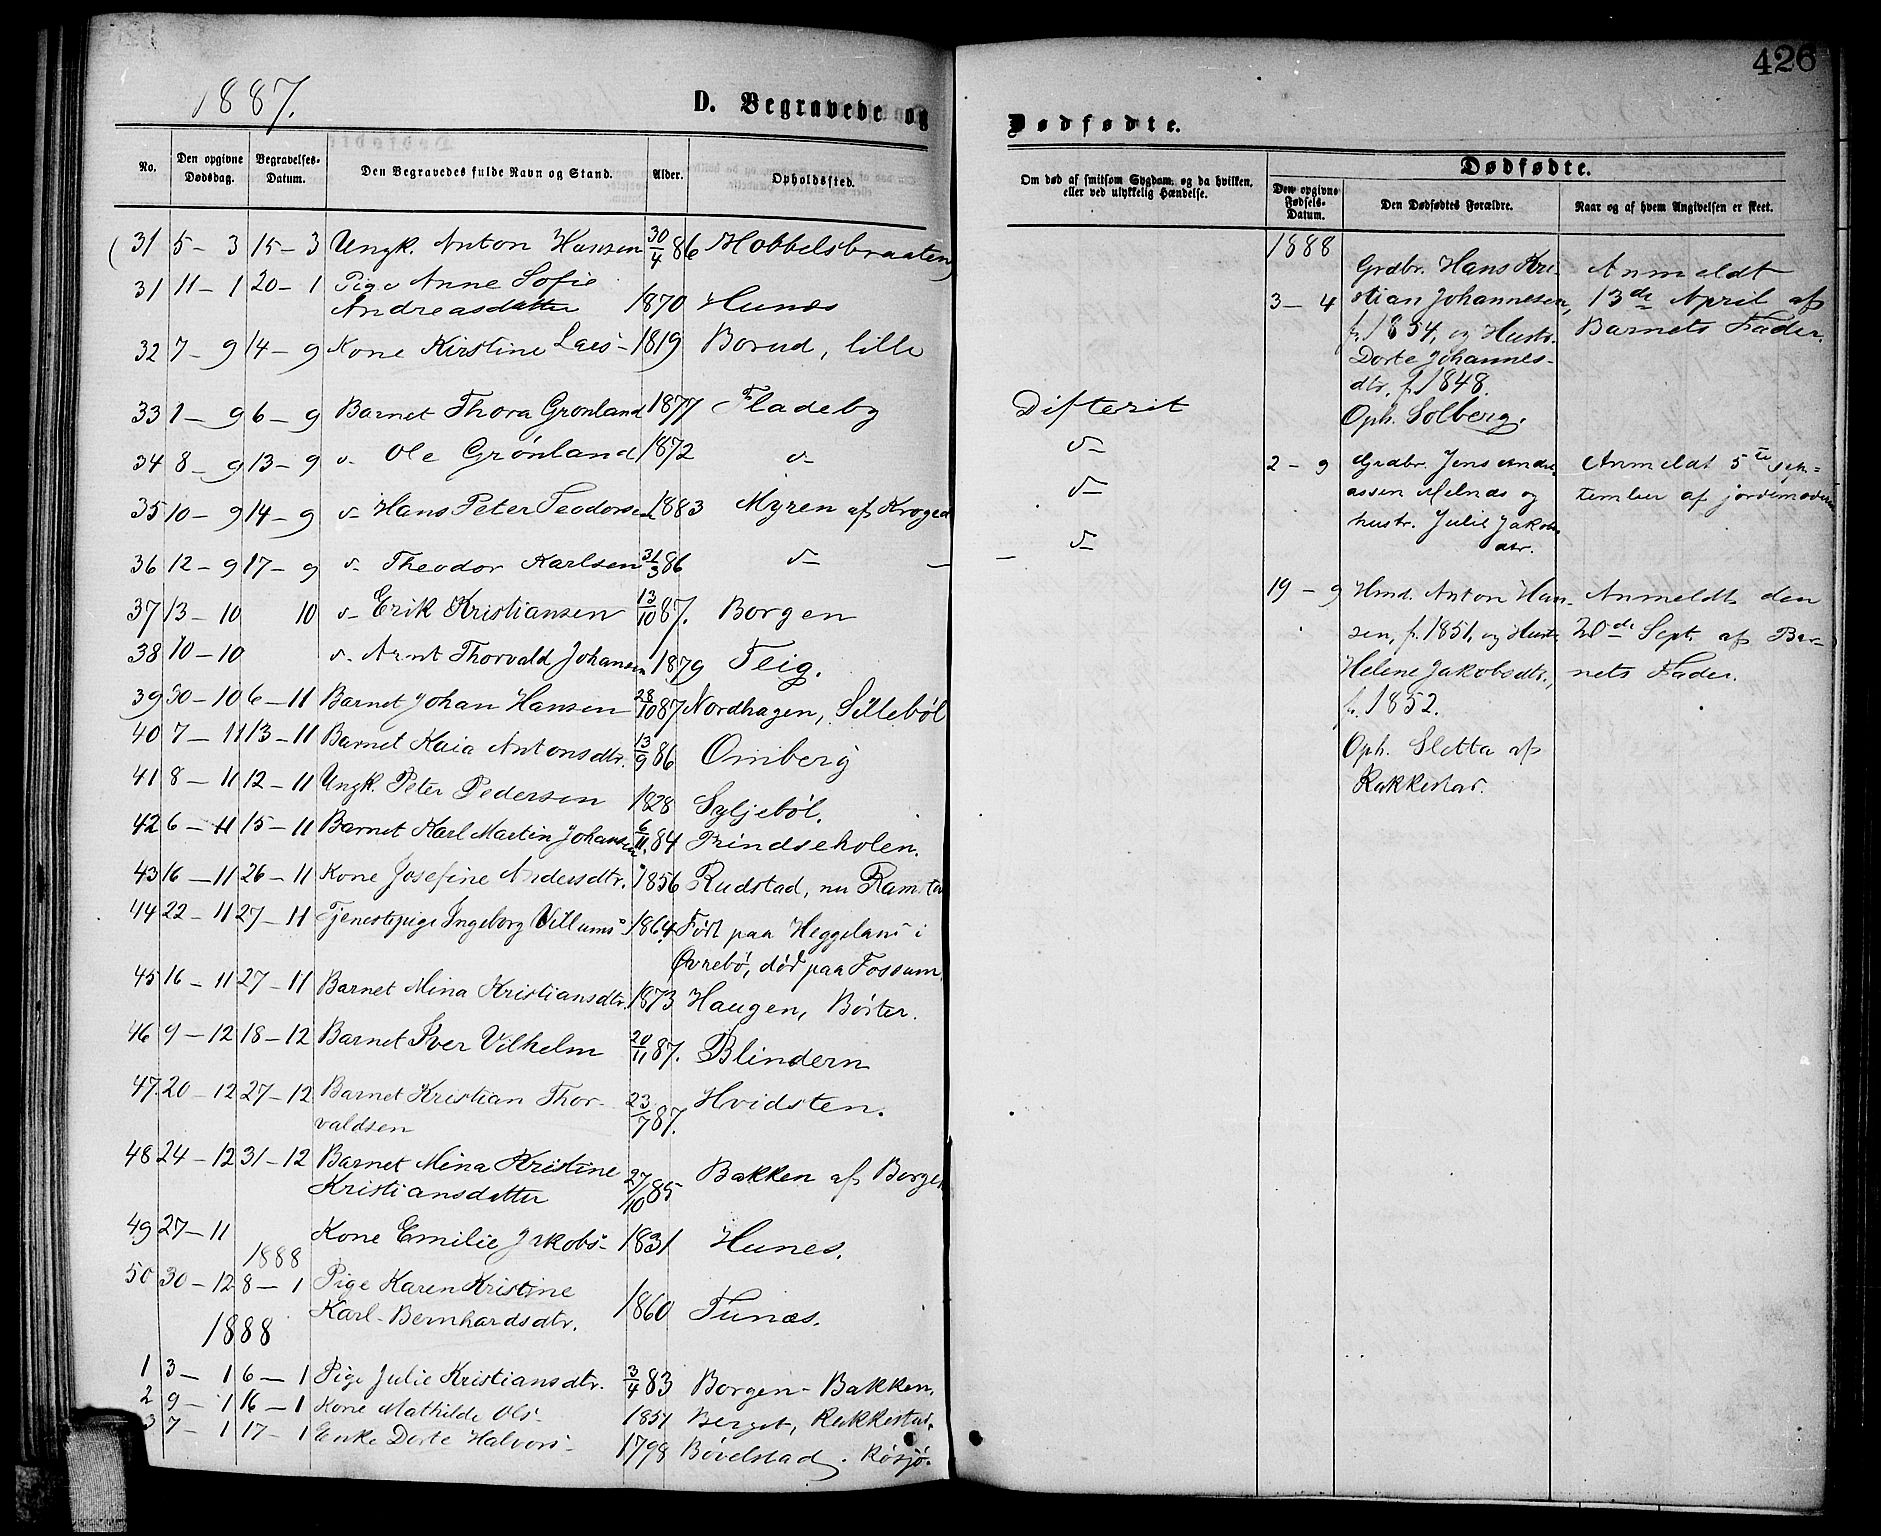 1887.
D. Begravede og
No.
Den opgivne Dødsdag.
Begravelses-Datum.
Den Begravedes fulde Navn og Stand.
Alder.
Opholdssted.
(31 5-3 15-3 Ungk. Anton Hansen 30/4 86 Hobbelsbraaten)
31 11-1 20-1 Pige Anne Sofie
Andreasdatter 1870 Hunæs
32 7-9 14-9 Kone Kirstine Lars- 1819 Borud, lille
33 1-9 6-9 Barnet Thora Grønland 1877 Fladeby
34 8-9 13-9 v- Ole Grønland 1872 v-
35 10-9 14-9 v- Hans Peter Teodorsen 1883 Myren af
36 12-9 17-9 v- Theodor Karlsen 31/3 86 v-
37 13-10 10 v- Erik Kristiansen 13/10 87. Borgen
38 10-10 v- Arnt Thorvald Johansen 1879 Teig.
39 30-10 6-11 Barnet Johan Hansen 28/10 87 Nordhagen, Sillebøl
40 7-11 13-11 Barnet Kaia Antonsdtr. 13/9 86 Omberg
41 8-11 12-11 Ungk. Peter Pedersen 1828 Syljebøl.
42 6-11 15-11 Barnet Karl Martin Johansen 6/11 84 Prindseholen.
43 16-11 26-11 Kone Josefine Andersdtr. 1856 Rudstad, nu
44 22-11 27-11 Tjenestepige Ingeborg Villums- 1864 Født paa Heggeland i
Øvrebø, død paa Fossum.
45 16-11 27-11 Barnet Mina Kristiansdtr. 1873 Haugen, Børter.
46 9-12 18-12 Barnet Iver Vilhelm 20/11 87. Blindern
47. 20-12 27-12 Barnet Kristian Thor-
valdsen 23/7 87. Hvidsten.
48 24-12 31-12 Barnet Mina Kristine
Kristiansdatter 27/10 85 Bakken af Borgen
49 27-11 Kone Emilie Jakobs- 1831 Hunes.
1888
50 30-12 8-1 Pige Karen Kristine
Karl-Bernhardsdtr. 1860 Tunæs.
1888
1 3-1 6-1 Pige Julie Kristiansdtr. 3/4 83 Borgen-Bakken.
2 9-1 16-1 Kone Mathilde Ols- 1851 Berget, Rakkestad.
3 7-1 17-1 Enke Dorte Halvors- 1798 Bøvelstad. Røsjø.
426
Dødfødte.
Om død af smitsom Sygdom, og da hvilken,
eller ved ulykkelig Hændelse.
Dødfødte.
Den opgivne Fødsels-Datum.
Den Dødfødtes Forældre.
Naar og af hvem Angivelsen er skeet.
Difterit
v-
v-
v-
1888
3-4 Grdbr. Hans Kri- Anmeldt
stian Johannesen, 13de April af
f. 1854, og Hustr. Barnets Fader.
Dorte Johannes-
dtr, f. 1848.
Oph. Solberg.
2-9 Grdbr. Jens Andre- Anmeldt 5te sep-
assen Melnæs og tember af jordemoderen
hustr. Julie Jakobs-
dtr.
19-9 Hmd. Anton Han- Anmeldt den
sen, f. 1851, og Hustr. 20de Sept. af Bar-
Helene Jakobsdtr., nets Fader.
f. 1852.
Oph. Sletta af
Rakkestad.